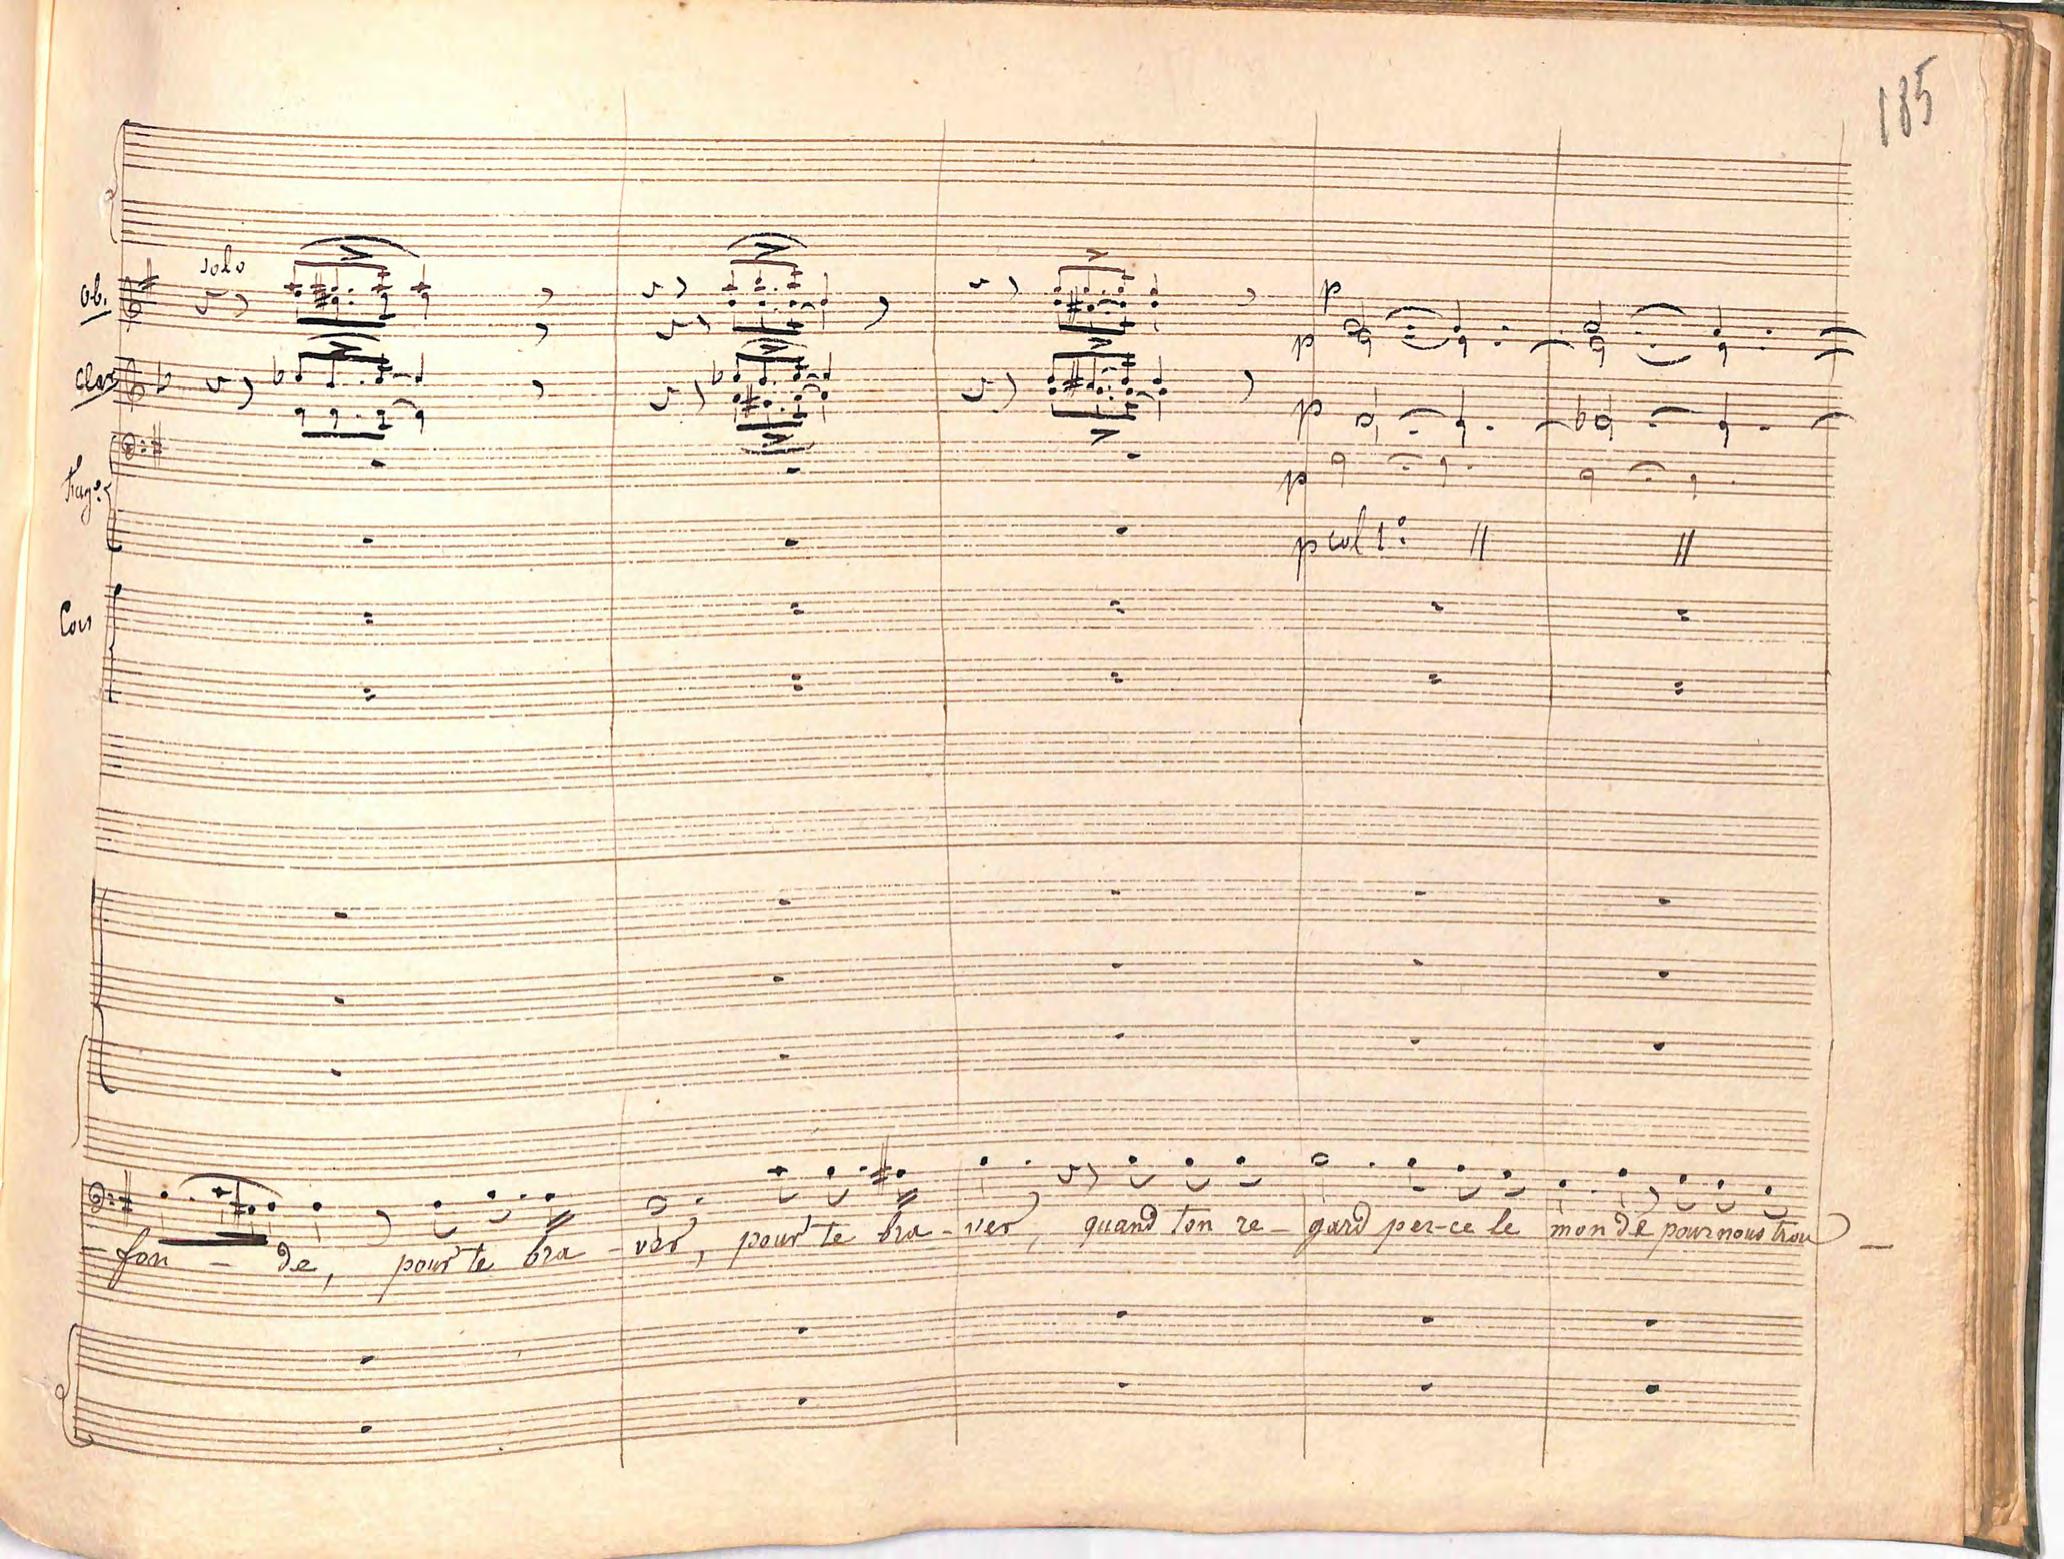 185
solo
Ob.
p
p
Clar
p
Fag:
p
p col 1:
Cor
fon - de, pour te bra - ver, pour te bra - ver, quand ton re - gard per-ce le monde pour nous trou -